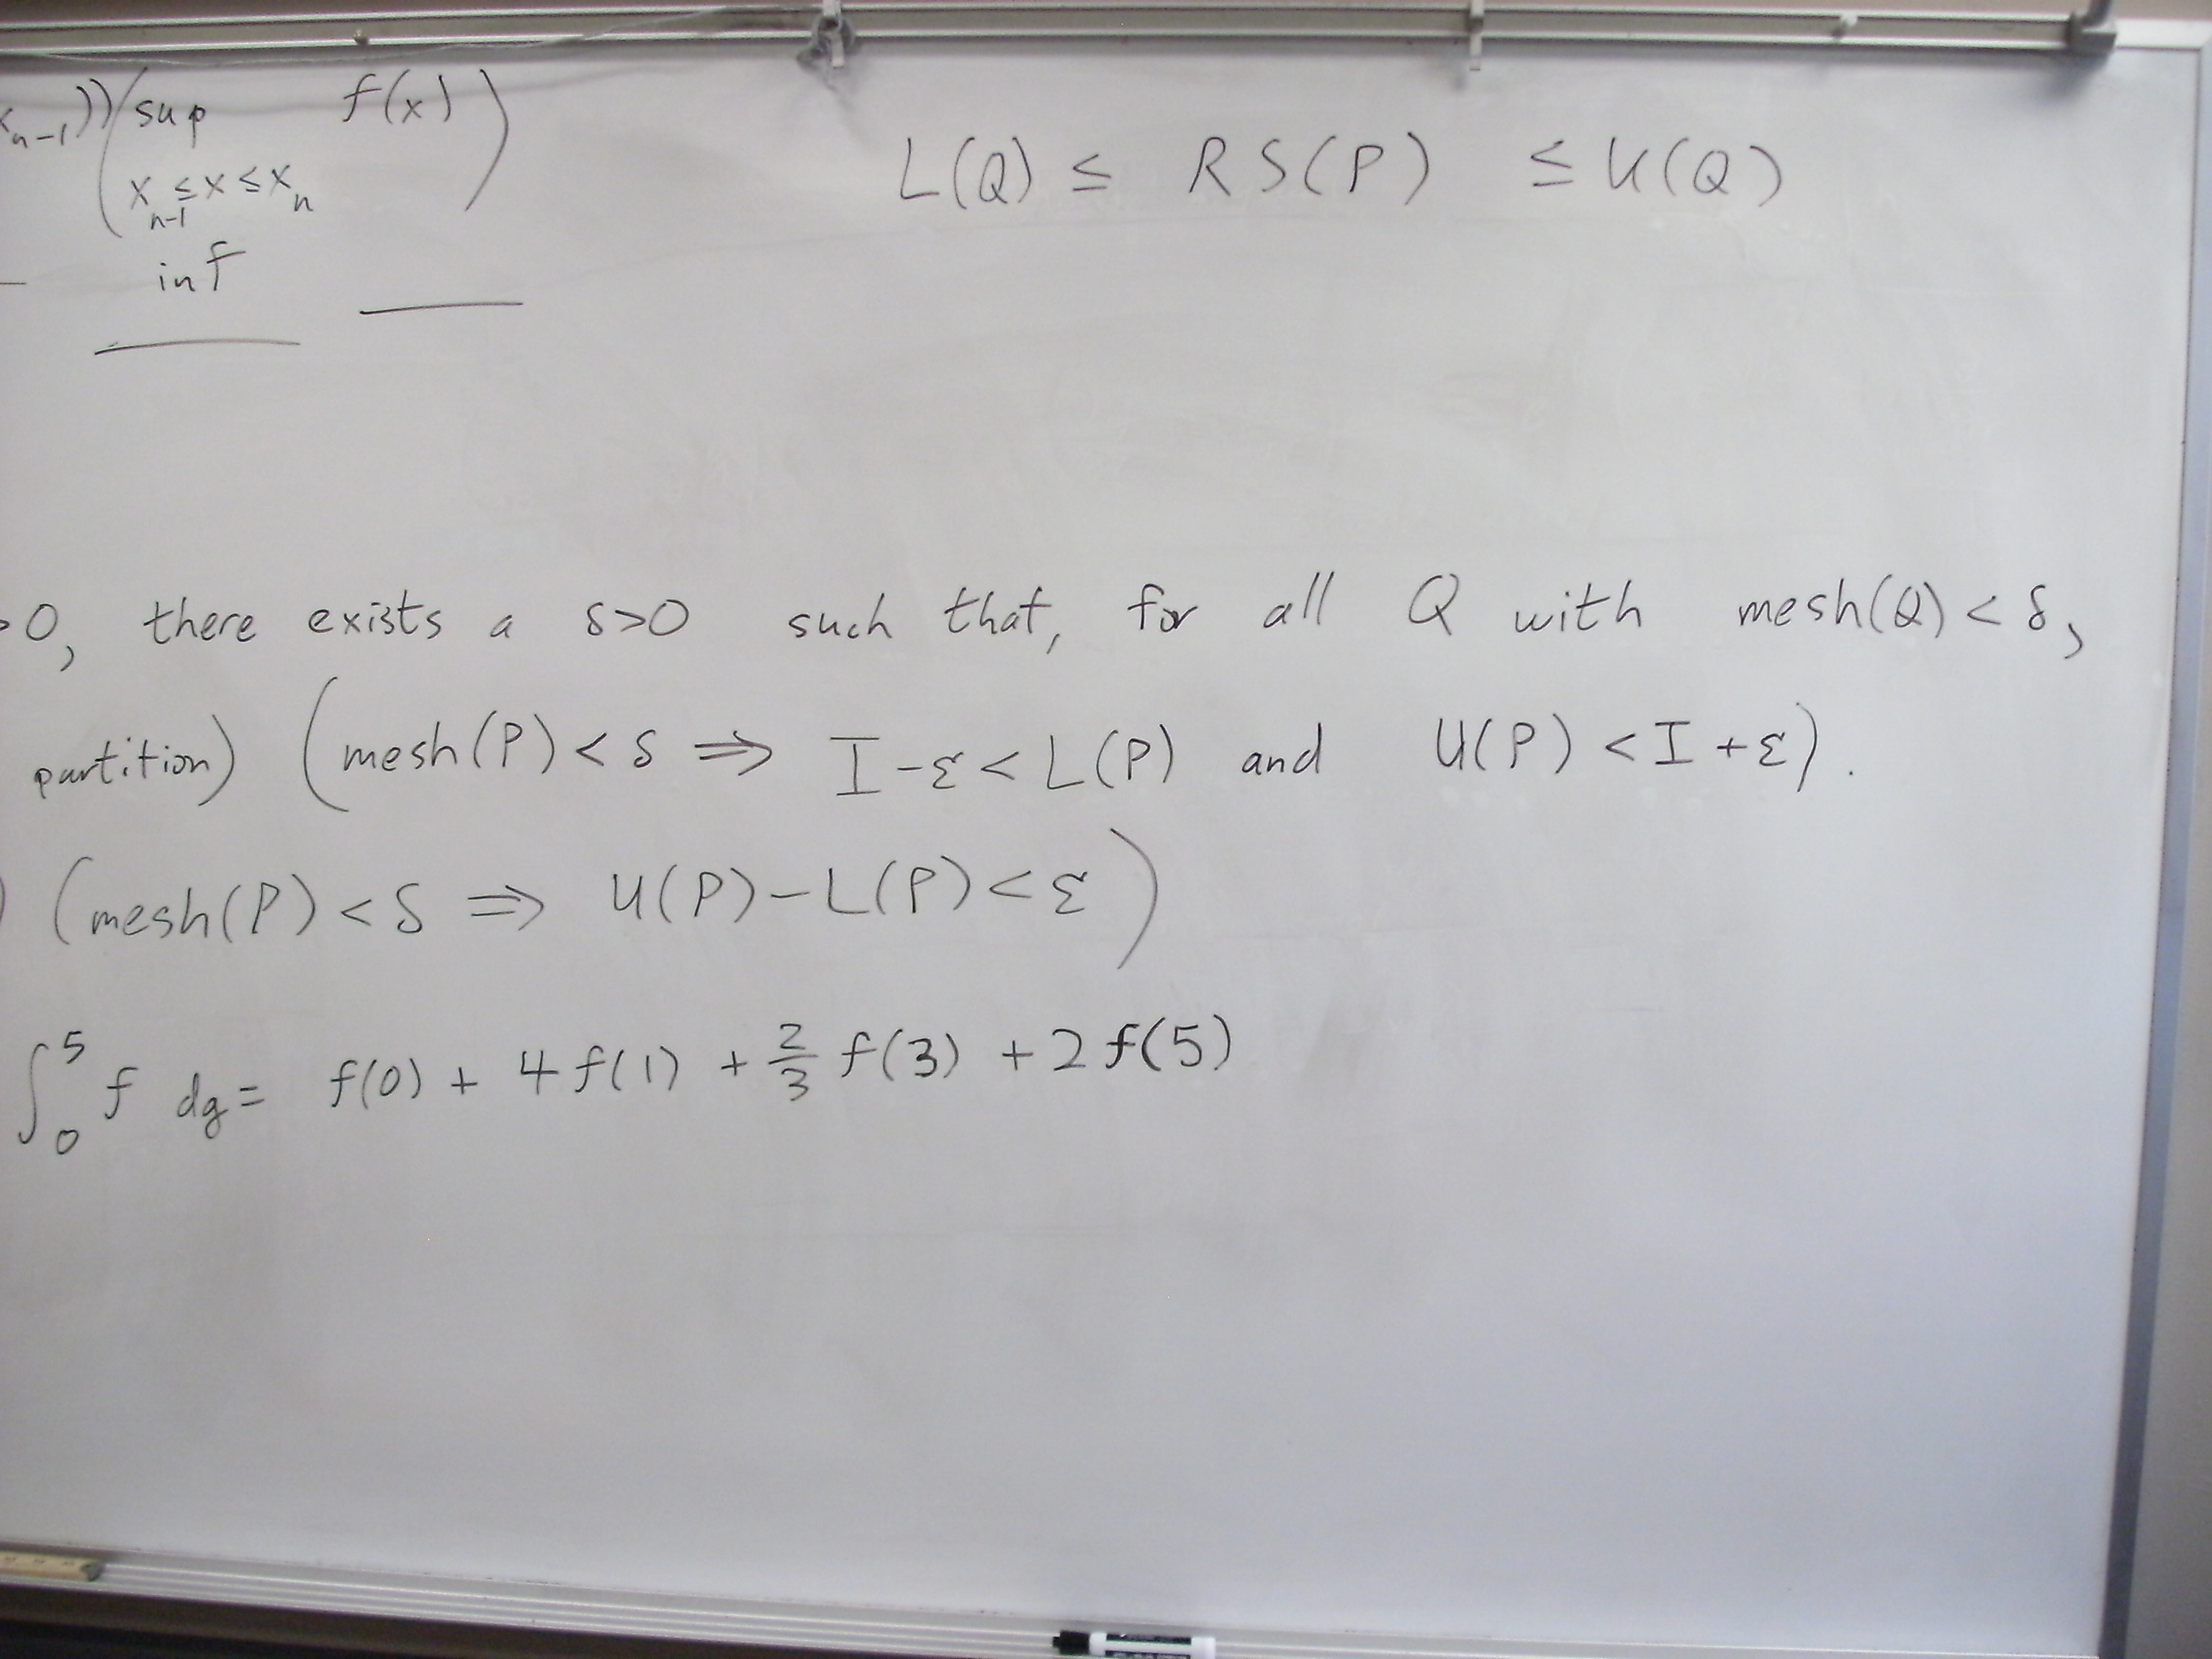 x_{n-1})) ( sup f(x) )
x_{n-1} ≤ x ≤ x_n
inf
L(Q) ≤ RS(P) ≤ U(Q)
>0, there exists a δ>0 such that, for all Q with mesh(Q) < δ,
partition) (mesh(P) < δ ⇒ I-ε < L(P) and U(P) < I+ε).
) (mesh(P) < δ ⇒ U(P)-L(P) < ε)
∫_0^5 f dg = f(0) + 4f(1) + 2/3 f(3) + 2f(5)